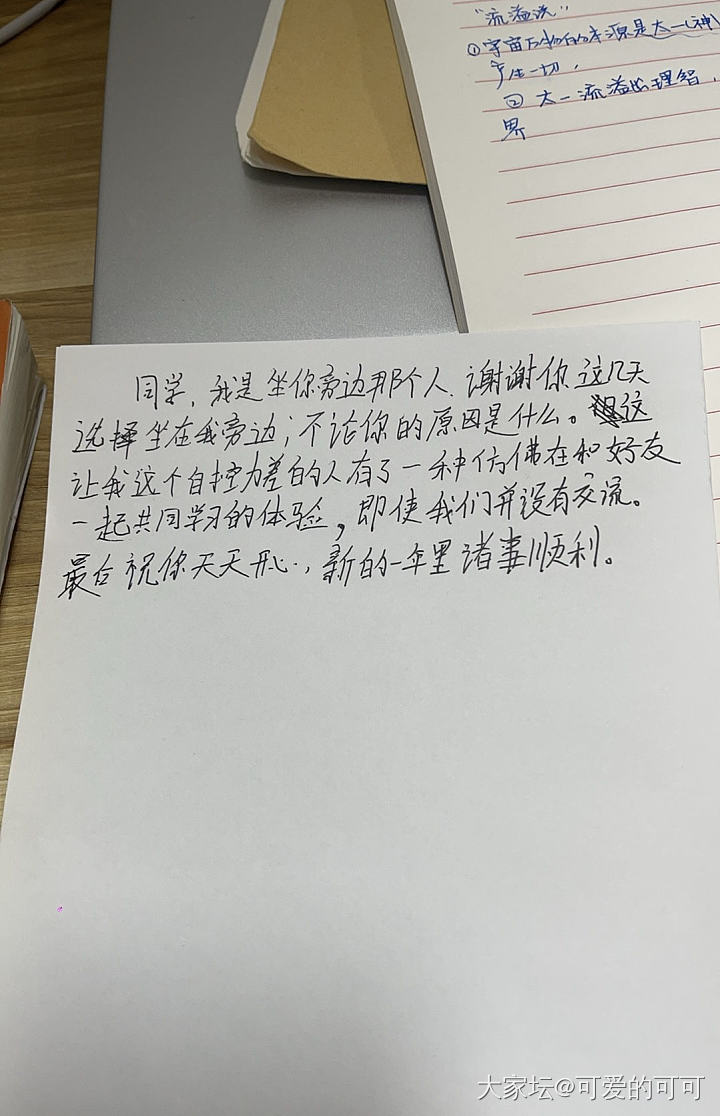 “流溢说”
①宇宙万物的本源是太一(神)
产生一切，
② 太一流溢出理智，
界
同学，我是坐你旁边那个人，谢谢你这几天
选择坐在我旁边；不论你的原因是什么。这
让我这个自控力差的人有了一种仿佛在和好友
一起共同学习的体验，即使我们并没有交流。
最后祝你天天开心，新的一年里诸事顺利。
大家坛@可爱的可可